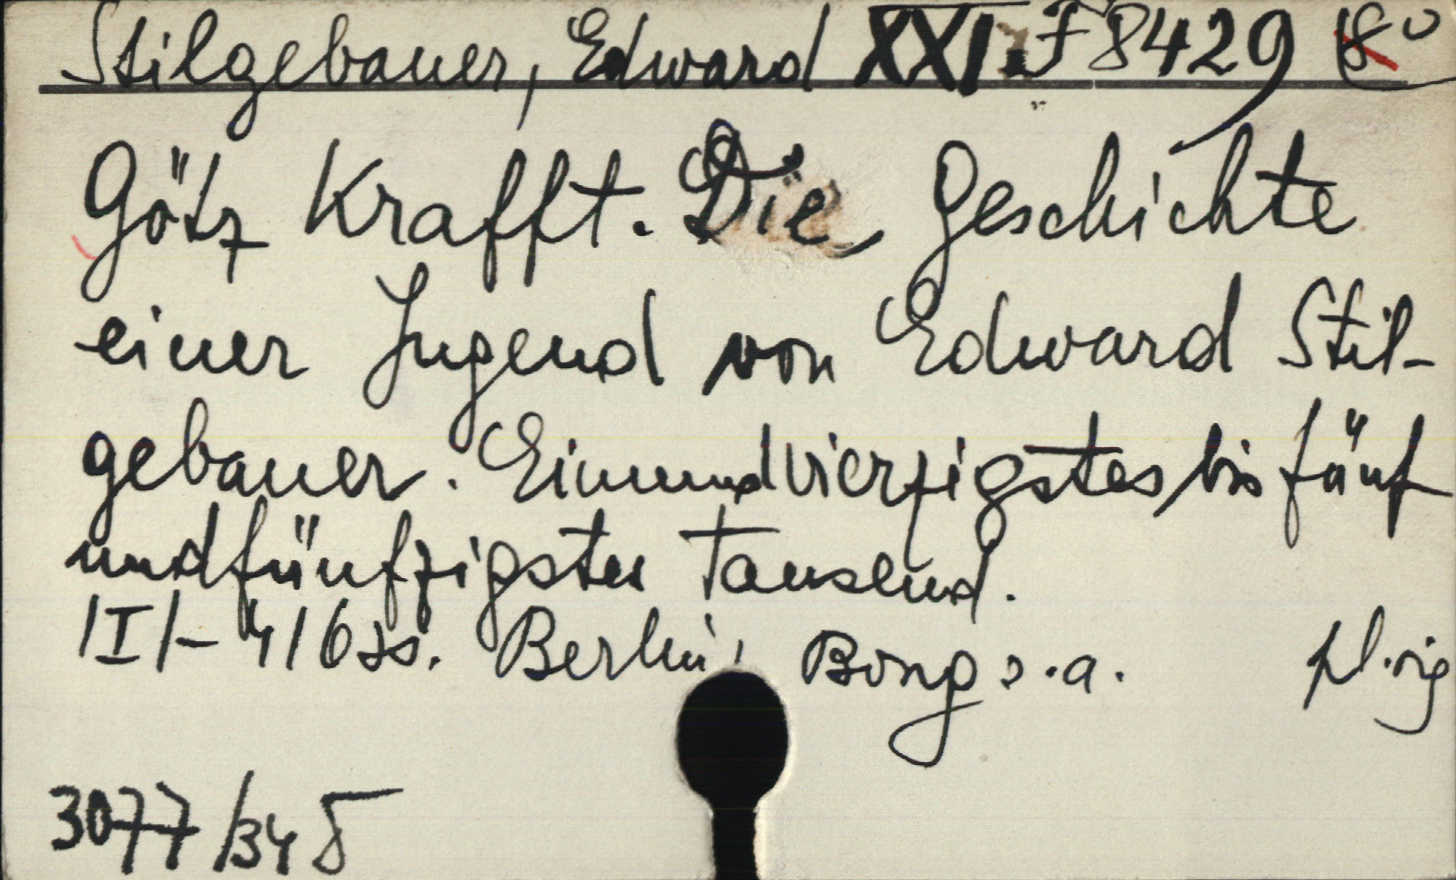 Stilgebauer, Edward XXI. F 8429 8°
Götz Krafft. Die Geschichte
einer Jugend von Edward Stil-
gebauer. Einundvierzigstes bis fünf
undfünfzigstes Tausend.
/I/- 416 ss. Berlin, Bong s.a.
3077/34